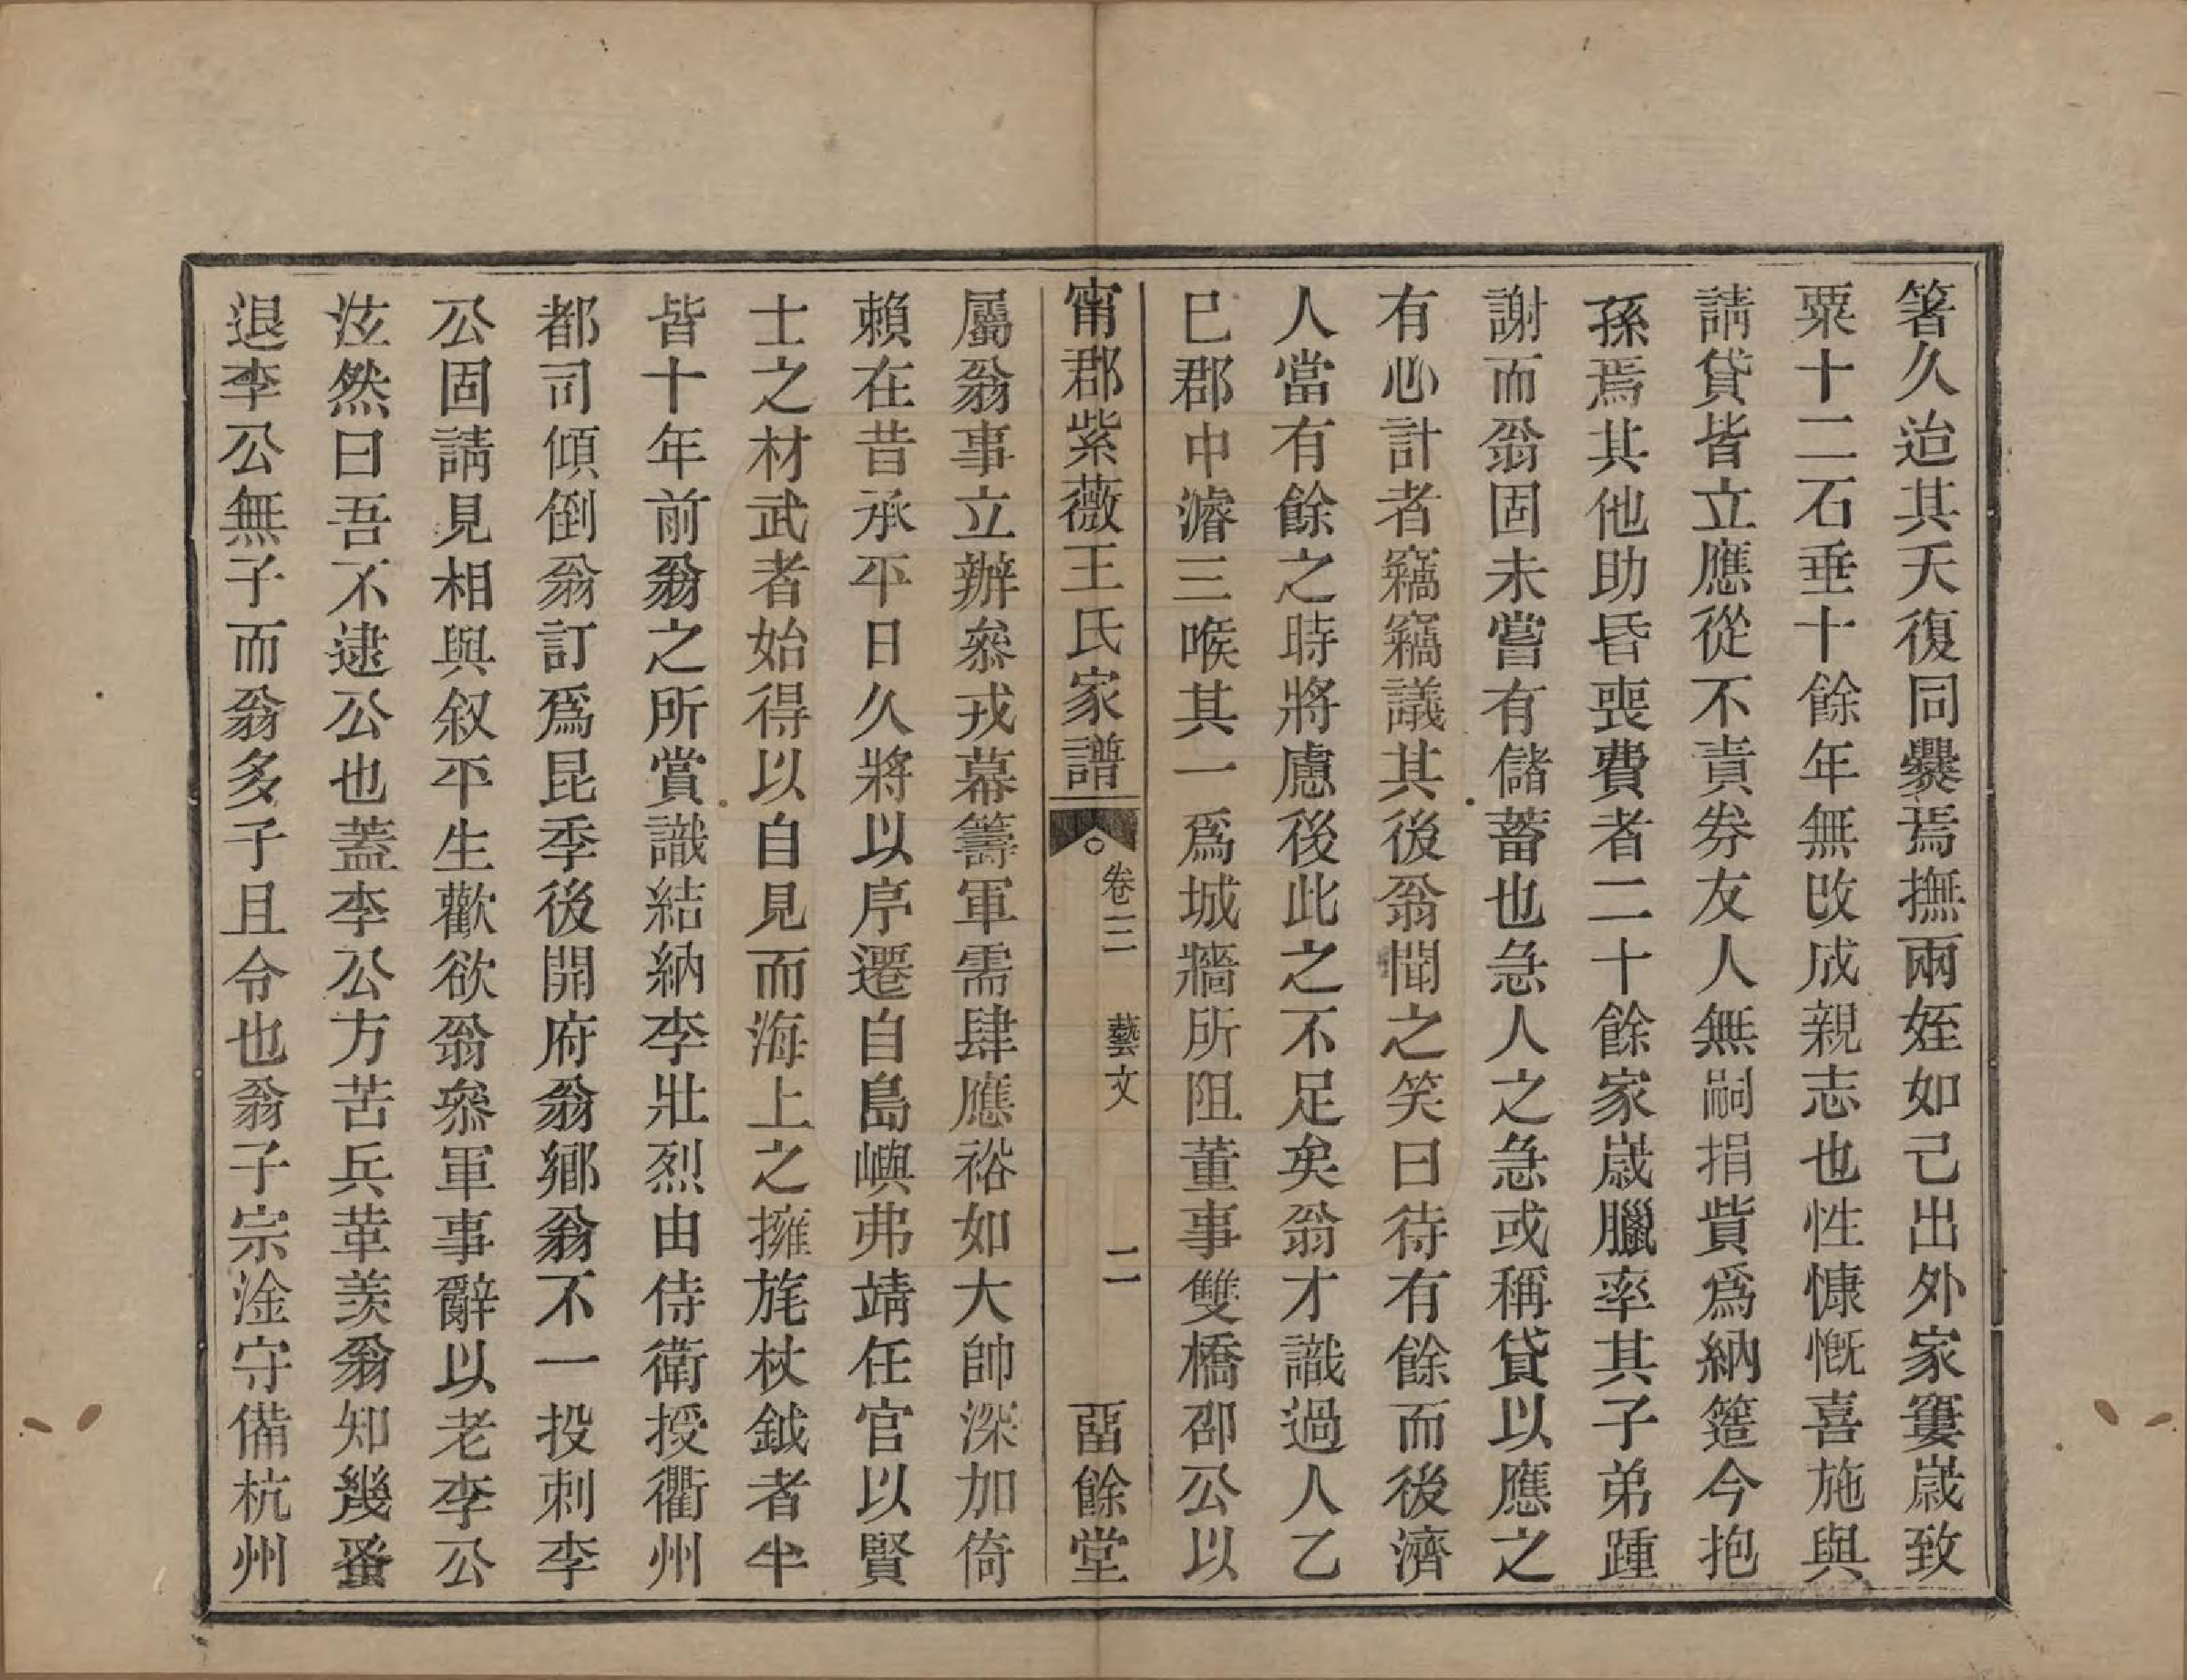 箸久迨其夭復同爨焉撫兩姪如己出外家窶歲致
粟十二石垂十餘年無改成親志也性慷慨喜施與
請貸皆立應從不責劵友人無嗣捐貲爲納簉今抱
孫焉其他助昏喪費者二十餘家歲臘率其子弟踵
謝而翁固未嘗有儲蓄也急人之急或稱貸以應之
有心計者竊竊議其後翁聞之笑曰待有餘而後濟
人當有餘之時將慮後此之不足矣翁才識過人乙
巳郡中濬三喉其一爲城牆所阻董事雙橋邵公以
甯郡紫薇王氏家譜
卷三
藝文
二
畱餘堂
屬翁事立辦叅戎幕籌軍需肆應裕如大帥深加倚
賴在昔承平日久將以序遷自島嶼弗靖任官以賢
士之材武者始得以自見而海上之擁旄杖鉞者半
皆十年前翁之所賞識結納李壯烈由侍衛授衢州
都司傾倒翁訂爲昆季後開府翁鄉翁不一投刺李
公固請見相與叙平生歡欲翁叅軍事辭以老李公
泫然曰吾不逮公也蓋李公方苦兵革羨翁知幾蚤
退李公無子而翁多子且令也翁子宗淦守備杭州